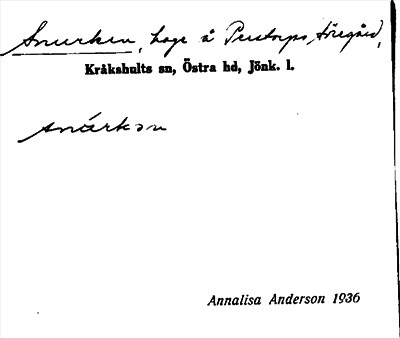 Snurken, hage å Pentorps, föregård,
Kråkshults sn, Östra hd, Jönk. l.
snúrkən
Annalisa Anderson 1936